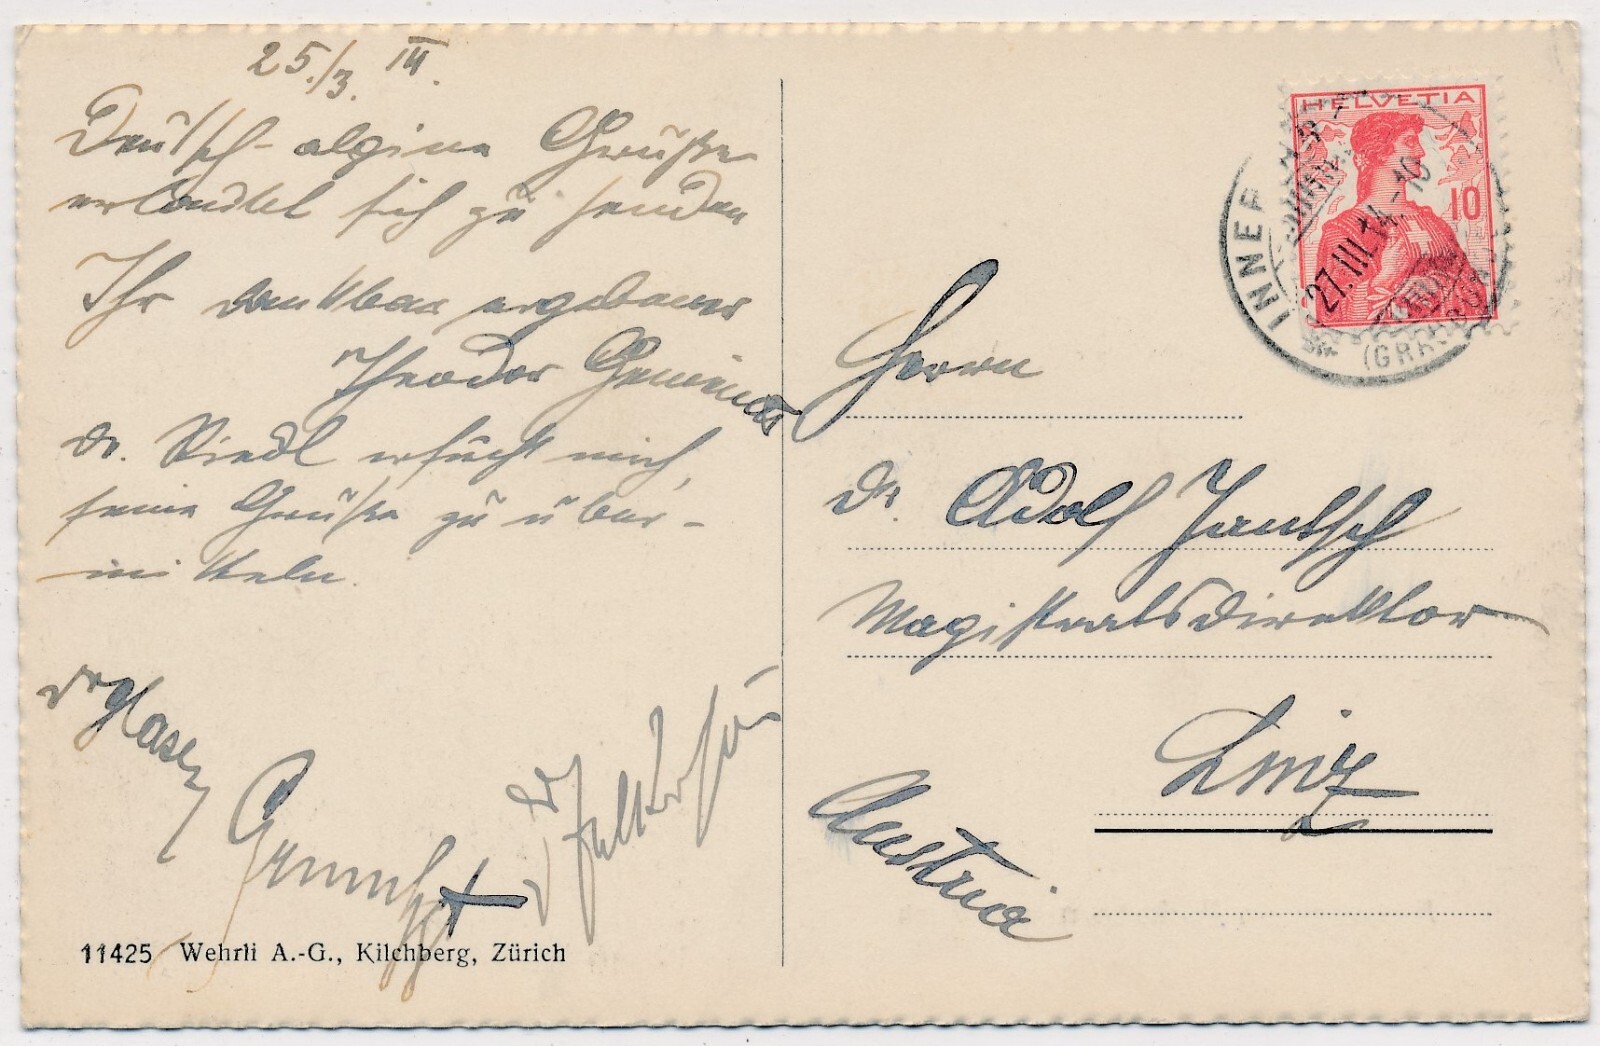 25./3. 14.
Deutsch-alpine Grüße
erlaubt sich zu senden
Ihr dankbar ergebener
Theodor
Dr. Riedl ersucht mich,
seine Grüße zu über-
mitteln.
Dr
11425 Wehrli A.-G., Kilchberg, Zürich
HELVETIA
10
INNER
27.III.14.-10
Herrn
Dr. Adolf Jantsch
Magistratsdirektor
Linz
Austria